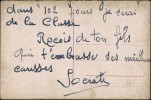 dans 102 jours je serai
de la Classe
Reçois de ton fils
qui t'embrasse ses meilleurs
caresses
Socrate